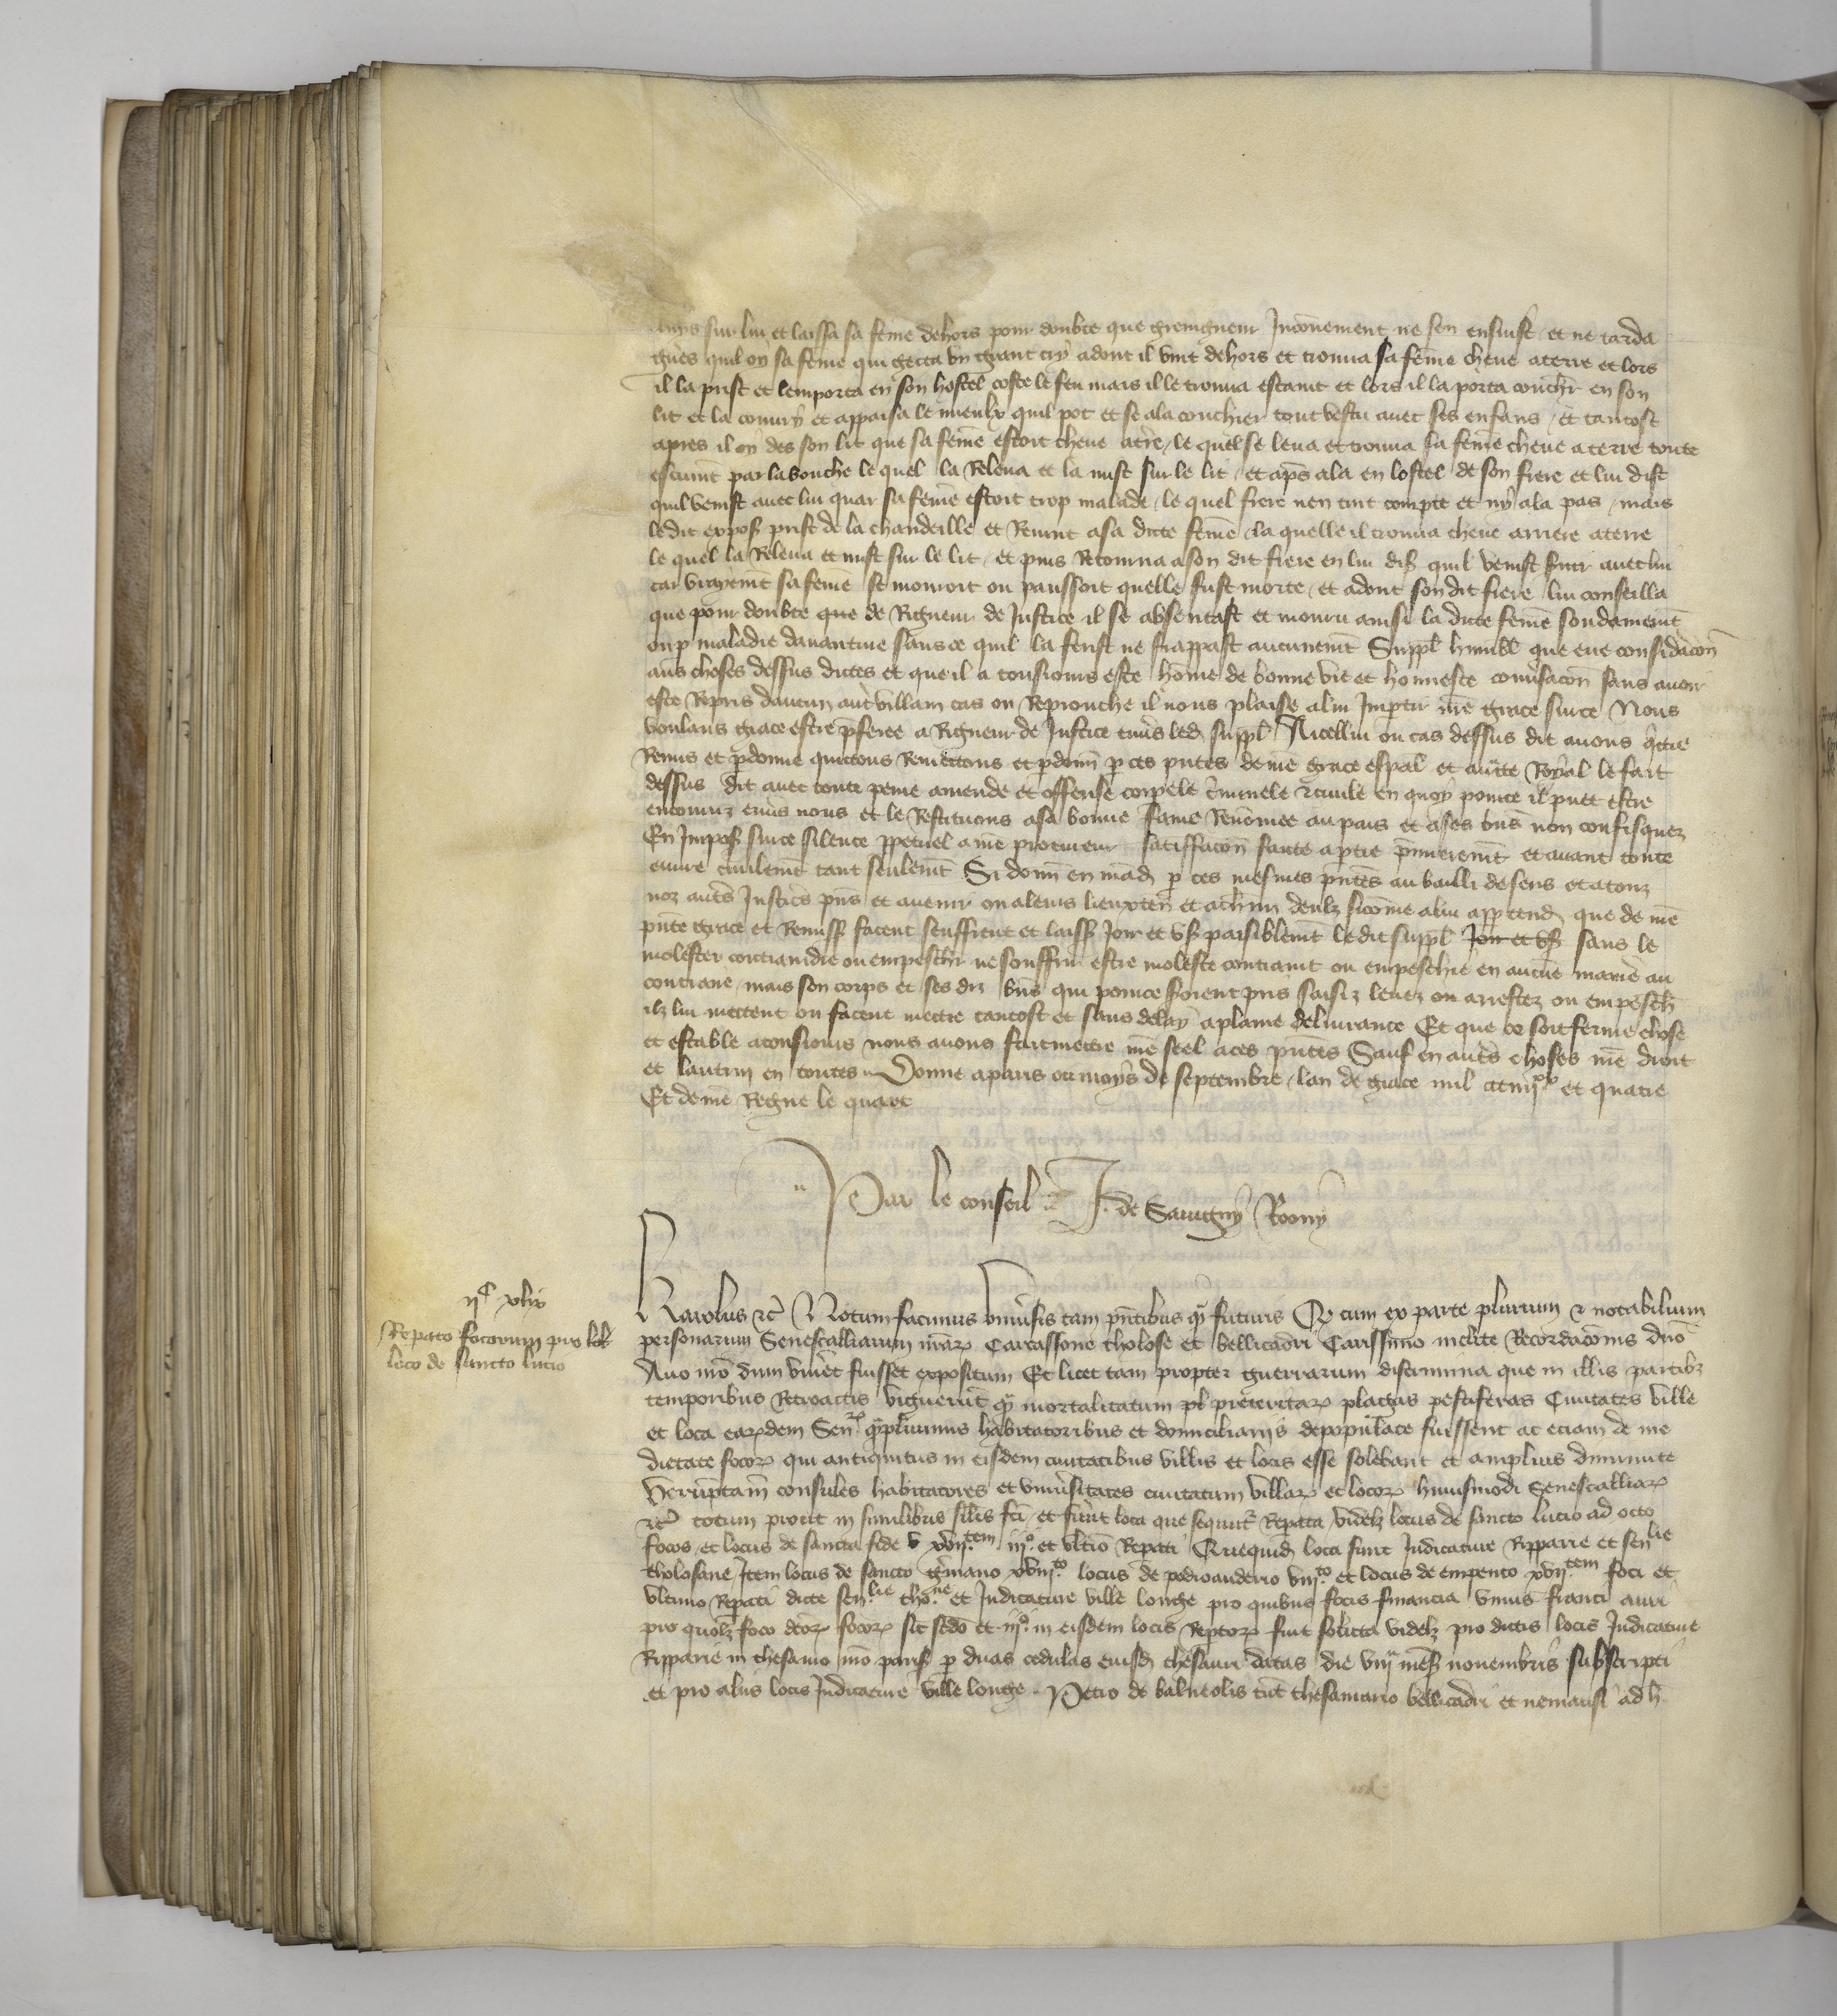 luys sur lui et laissa sa feme dehors pour doubte que greingneur Inconvenient ne sen ensuist / et ne tarda
gues quil oy sa feme qui gecta un grant cry adont il vint dehors et trouva sa feme cheue a terre et lors
il la prist et lemporta en son hostel coste le feu mais il le trouva estaint et lors il la porta couchr en son
lit et la couvry et appaisa le mieulx quil pot et se ala couchier tout vestu avec ses enfans / et tantost
apres il oy des son lit que sa feme estoit cheue a terre / le quel se leva et trouva sa feme cheue a terre toute
escumt par la bouche le quel la Releva et la mist sur le lit / et aps ala en lostel de son frere et lui dist
quil venist avec lui quar sa feme estoit trop malade / le quel frere nen tint compte et ny ala pas / mais
le dit expos prist de la chandeille et Revint a sa dicte feme la quelle il trouva cheue arriere a terre
le quel la Releva et mist sur le lit / et puis Retourna a son dit frere en lui dis quil venist avec lui
car vrayemt sa feme se mouroit ou panssoit quelle fust morte / et adont son dit frere lui conseilla
que pour doubte que de Rigueur de Justice il se absentast et mouru ainsi la dicte feme soudainemt
ou p maladie davanture sans ce quil la ferist ne frappast aucunemt Suppl humbl que eue considacon
aus choses dessus dictes et que il a tousiours este home de bonne vie et honneste conversacon sans avoir
este Repris daucun autre villain cas ou Reprouche il nous plaise a lui Impartir nre grace sur ce Nous
voulans grace estre pferee a Rigueur de Justice envers led suppl A icellui ou cas dessus dit avons quitte
Remis et pdonne quictons Remettons et pdonn p ces pntes de nre grace espal et auctte Royal le fait
dessus dit avec toute peine amende et offense corpele criminele et civile en quoy pour ce il puet estre
encouruz envers nous et le Restituons a sa bonne fame Renomee au pais et a ses bns non confisquez
En Impos sur ce silence ppetuel a nre procureur satiffacon faicte a ptie premieremt et avant toute
euvre civilemt tant seulemt Si donn en mand p ces mesmes pntes au bailli de sens et a touz
noz autres Justiciers pns et avenir ou a leurs lieuxten et a chun deulz si come a lui appartend que de nre
pnte grace et Remiss facent seuffrent et laiss Joir et us paisiblemt le dit suppl Joir et us sans le
molester contraindre ou empeschr ne souffrir estre moleste contraint ou empeschie en aucune maniere au
contraire / mais son corps et ses diz bns qui pour ce seroient pris saisiz levez ou arrestez ou empesch
ilz lui mettent ou facent mectre tantost et sans delay a plaine delivrance Et que ce soit ferme chose
et estable a tousiours nous avons fait mectre nre seel a ces pntes Sauf en autres choses nre droit
et lautruy en toutes Donne a paris ou moys de septembre / lan de grace mil ccc iiijxx et quatre
Et de nre Regne le quart
Par le conseil J. de Sauvigny Roony
ijc xlix
Repato focorum pro
loco de sancto lucio
Karolus etc Notum facimus universis tam pntibus q futuris Q cum ex parte plurium et notabilium
personarum Senescalliarum nrar Carcassone tholose et bellicadri Carissimo inclite Recordacionis dno
Avo nro dum viveret fuisset expositum Et licet tam propter guerrarum discrimina que in illis partibz
temporibus Retroactis viguerunt q mortalitatum pl preteritar plagas pestiferas Civitates ville
et loca eardem Sen qpluримis habitatoribus et domiciliariis depopulate fuissent ac eciam de me
dietate focor qui antiquitus in eisdem civitatibus villis et locis esse solebant et amplius diminute
Veruptam consules habitatores et universitates civitatum villar et locor huiusmodi Senescalliar
etc totum prout in similibus silis fci / et sunt loca que sequnt Repata / videlz locus de sancto lucio ad octo
focos / et locus de sancta fide v xviitem iijo et ultio Repati Quequid loca sunt Judicature Ripparie et senlie
tholosane / Item locus de sancto Germano xviijto locus de podioauderio viijto et locus de empento xviitem foci et
ultimo Repati dicte senlie thone et Judicature ville longe pro quibus focis financia unius franci auri
pro quolz foco dcor focor sic sedo et iijo in eisdem locis Reptor fuit soluta videlz pro dictis locis Judicature
Ripparie in thesauro nro paris p duas cedulas eiusd thesauri datas die viij mens novembris subscripti
et pro aliis locis Judicature ville longe Petro de balneolis tunc thesaurario bellicadri et nemausi ad h